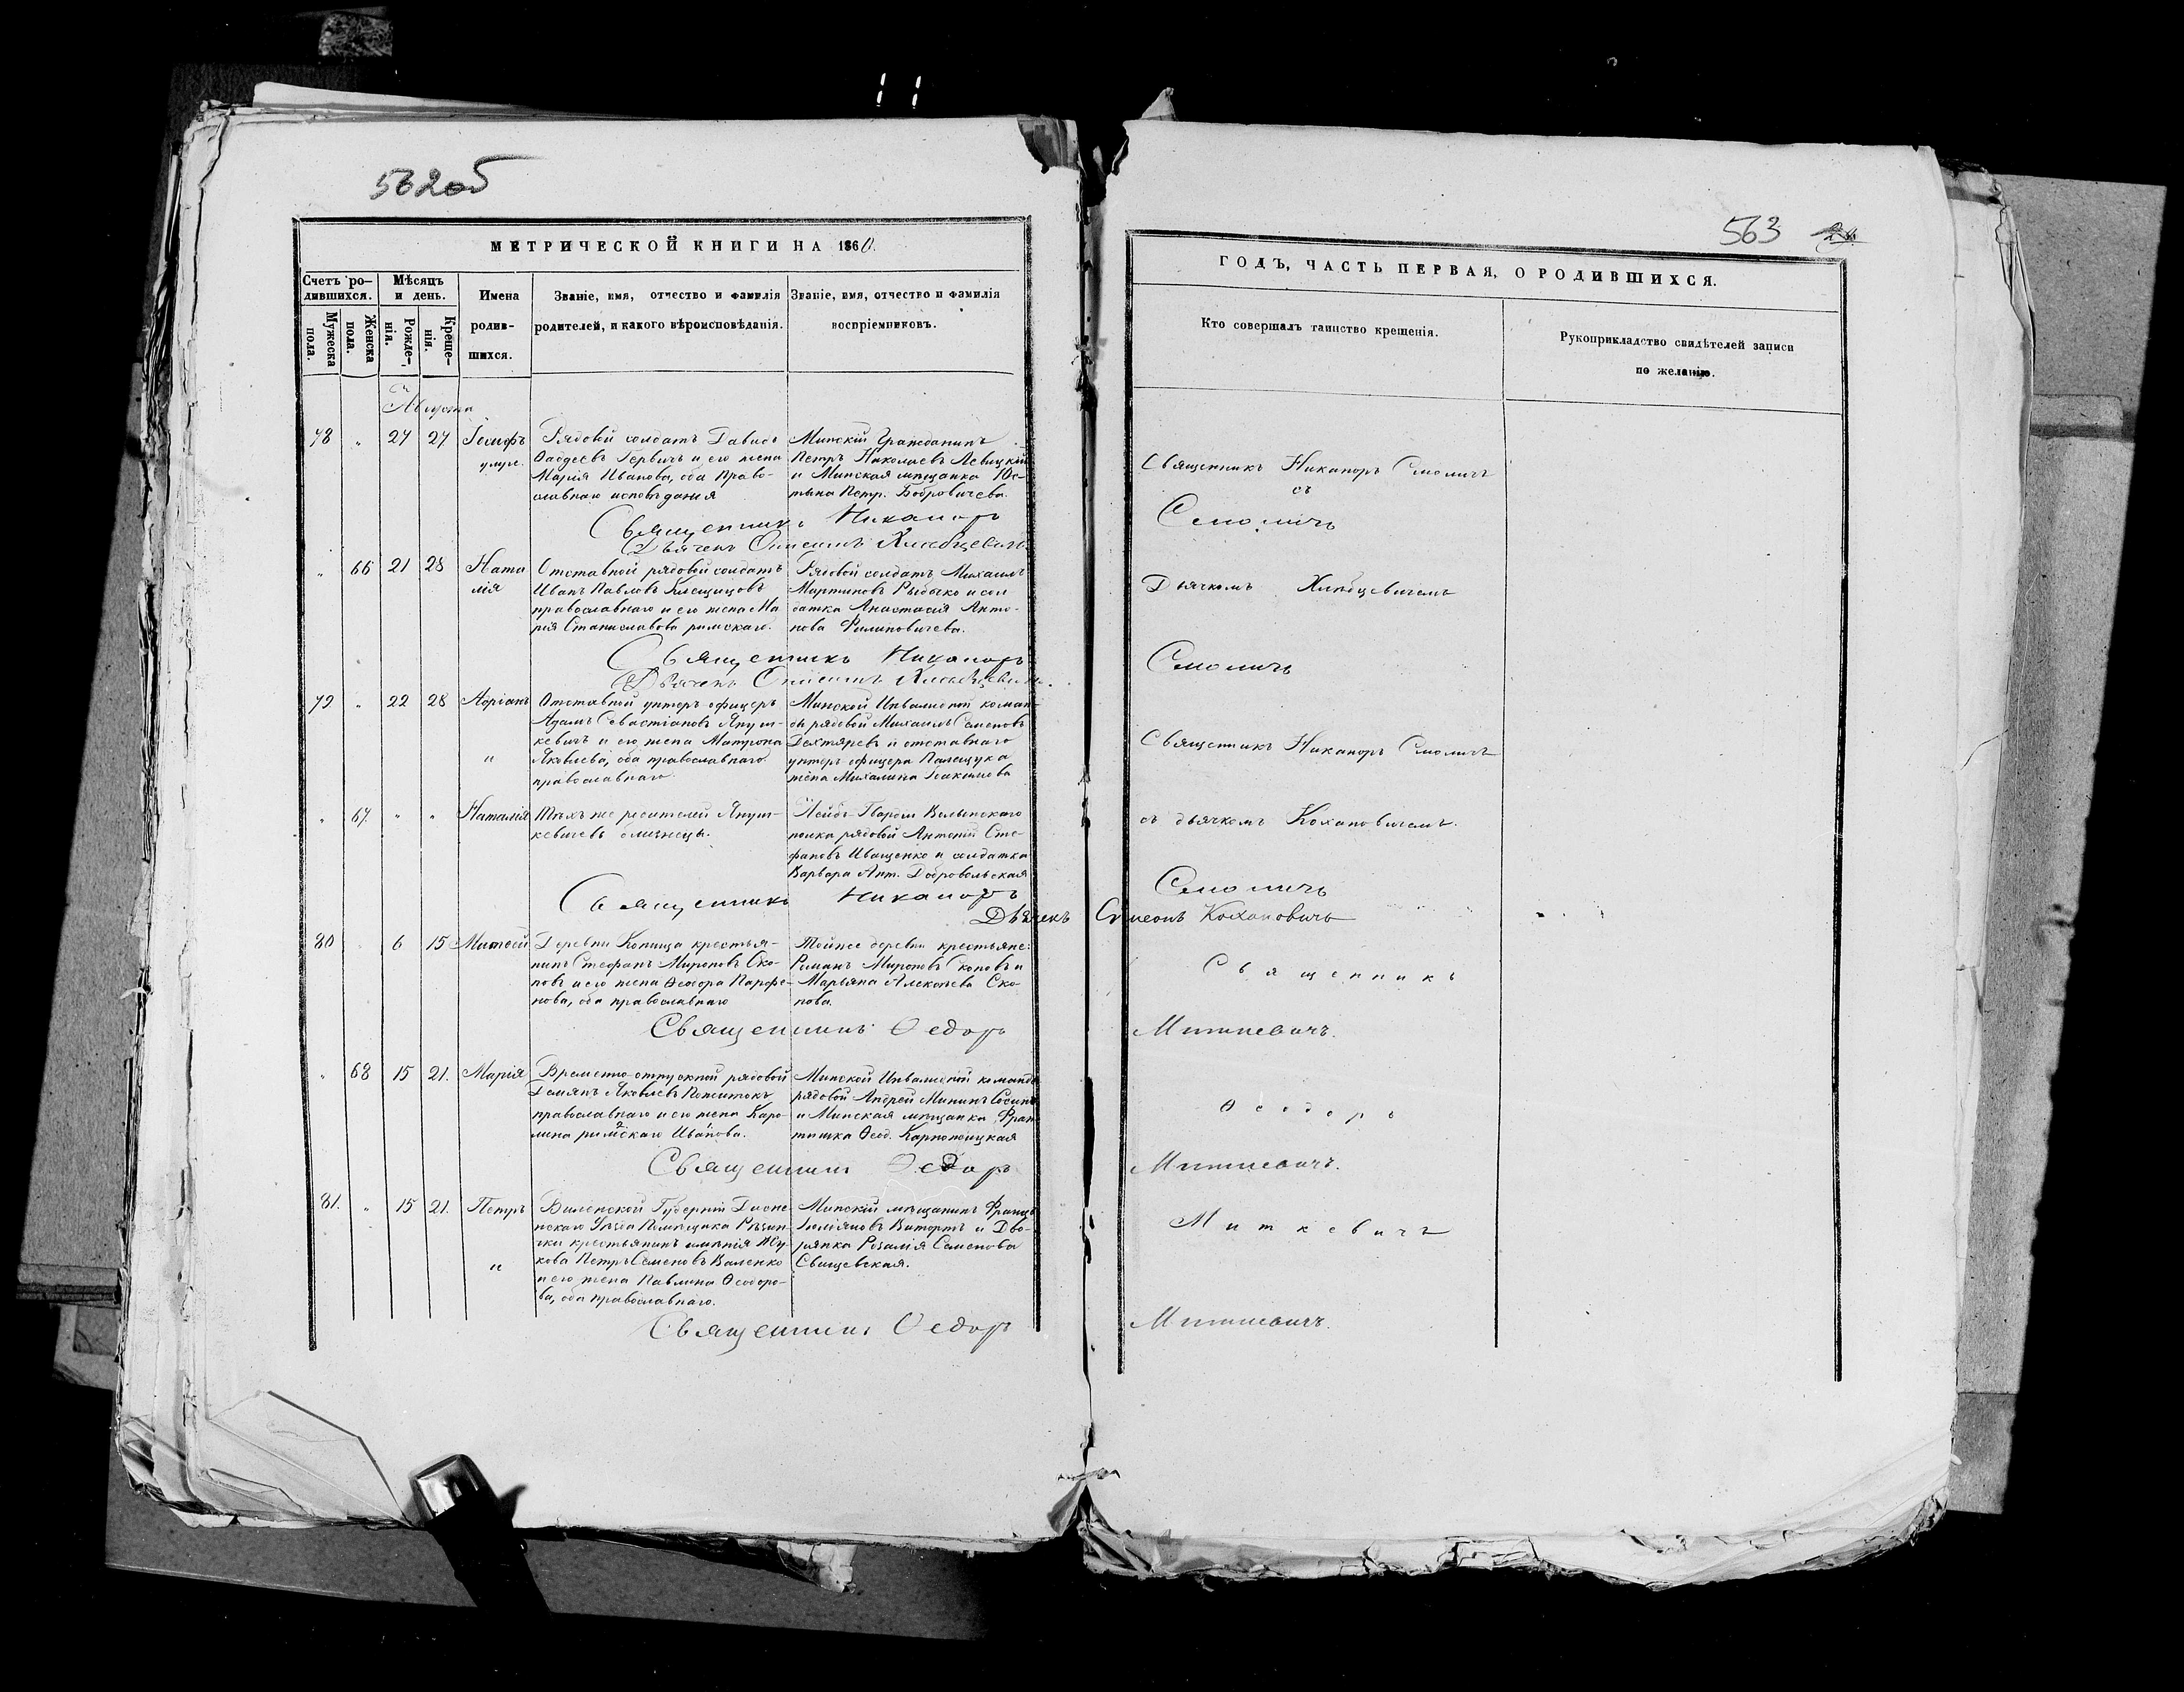 562об
МЕТРИЧЕСКОЙ КНИГИ НА 1860.
Счетъ ро-
дившихся.
Мѣсяцъ
и день.
Имена
родив-
шихся.
Званіе, имя, отчество и фамилія
родителей, и какого вѣроисповѣданія.
Званіе, имя, отчество и фамилія
воспріемниковъ.
Мужеска
пола.
Женска
пола.
Рожде-
нія.
Креще-
нія.
Августа
78 " 27 27 Іосифъ
умре.
Рядовой солдатъ Давидъ
Фаддеевъ Гервичъ и его жена
Марія Иванова, оба Право-
славнаго исповѣданія
Минскій Гражданинъ
Петръ Николаевъ Левицкій
и Минская мѣщанка Юс-
тына Петр. Бобровичева.
Священникъ Никаноръ
Дьячекъ Хлѣбцевичъ
" 66 21 28 Ната
лія
Отставной рядовой солдатъ
Иванъ Павловъ Клещицовъ
православнаго и его жена Ма
рія Станиславова римскаго.
Рядовой солдатъ Михаилъ
Мартиновъ Рыбычко и сол
датка Анастасія Анто-
нова Филиповичева.
Священникъ Никаноръ
Дьячекъ Хлѣбцевичъ.
79 " 22 28 Адріанъ
"
Отставной унтеръ офицеръ
Адамъ Севастіановъ Януш-
кевичъ и его жена Матрона
Яковлева, оба православнаго
православнаго
Минской Инвалидной коман-
ды рядовой Михаилъ Семеновъ
Дехтяревъ и отставнаго
унтеръ офицера Палещука
жена Михалина Іоакимова
" 67. " " Наталія
Тѣхъ же родителей Януш-
кевичевъ близнецы.
Лейбъ-Гвардіи Волынскаго
полка рядовой Антоній Сте-
фановъ Иващенко и солдатка
Варвара Ант. Добровольская
Священникъ Никаноръ
Дьячекъ
80 6 15 Матвей
Деревни Копища крестья-
нинъ Стефанъ Мироновъ Ско-
повъ и его жена Феодора Парфе-
нова, оба православнаго
Тойже деревни крестьяне:
Романъ Мироновъ Скоповъ и
Марьяна Алексѣева Ско-
пова.
Священникъ Ѳедоръ
" 68 15 21. Марія
Временно-отпускной рядовой
Демянъ Яковлевъ Пожитокъ
православнаго и его жена Каро-
лина римскаго Иванова.
2 1
Минской Инвалидной команды
рядовой Андрей Мининъ
и Минская мѣщанка Фран
тишка Ѳеод.
Священникъ Ѳедоръ
81. " 15 21. Петръ
"
Виленской Губерніи Дисне
нскаго Уѣзда Помѣщика
крестьянинъ имѣнія Жу-
кова Петръ Семеновъ Валенко
и его жена Павлина Ѳеодоро-
ва, оба православнаго.
Минскій мѣщанинъ Францъ
Витортъ и Дво-
рянка Розалія Семенова
Свищевская.
Священникъ Ѳедоръ
563 24
ГОДЪ, ЧАСТЬ ПЕРВАЯ, О РОДИВШИХСЯ.
Кто совершалъ таинство крещенія.
Рукоприкладство свидѣтелей записи
по желанію.
Священникъ Никаноръ Смоличъ
съ
Смоличъ
Дьячкомъ Хлѣбцевичемъ
Смоличъ
Священникъ Никаноръ Смоличъ
съ дьячкомъ Кохановичемъ.
Смоличъ
Симеонъ Кохановичъ
Священникъ
Миткевичъ.
Ѳеодоръ
Миткевичъ.
Миткевичъ
Миткевичъ.